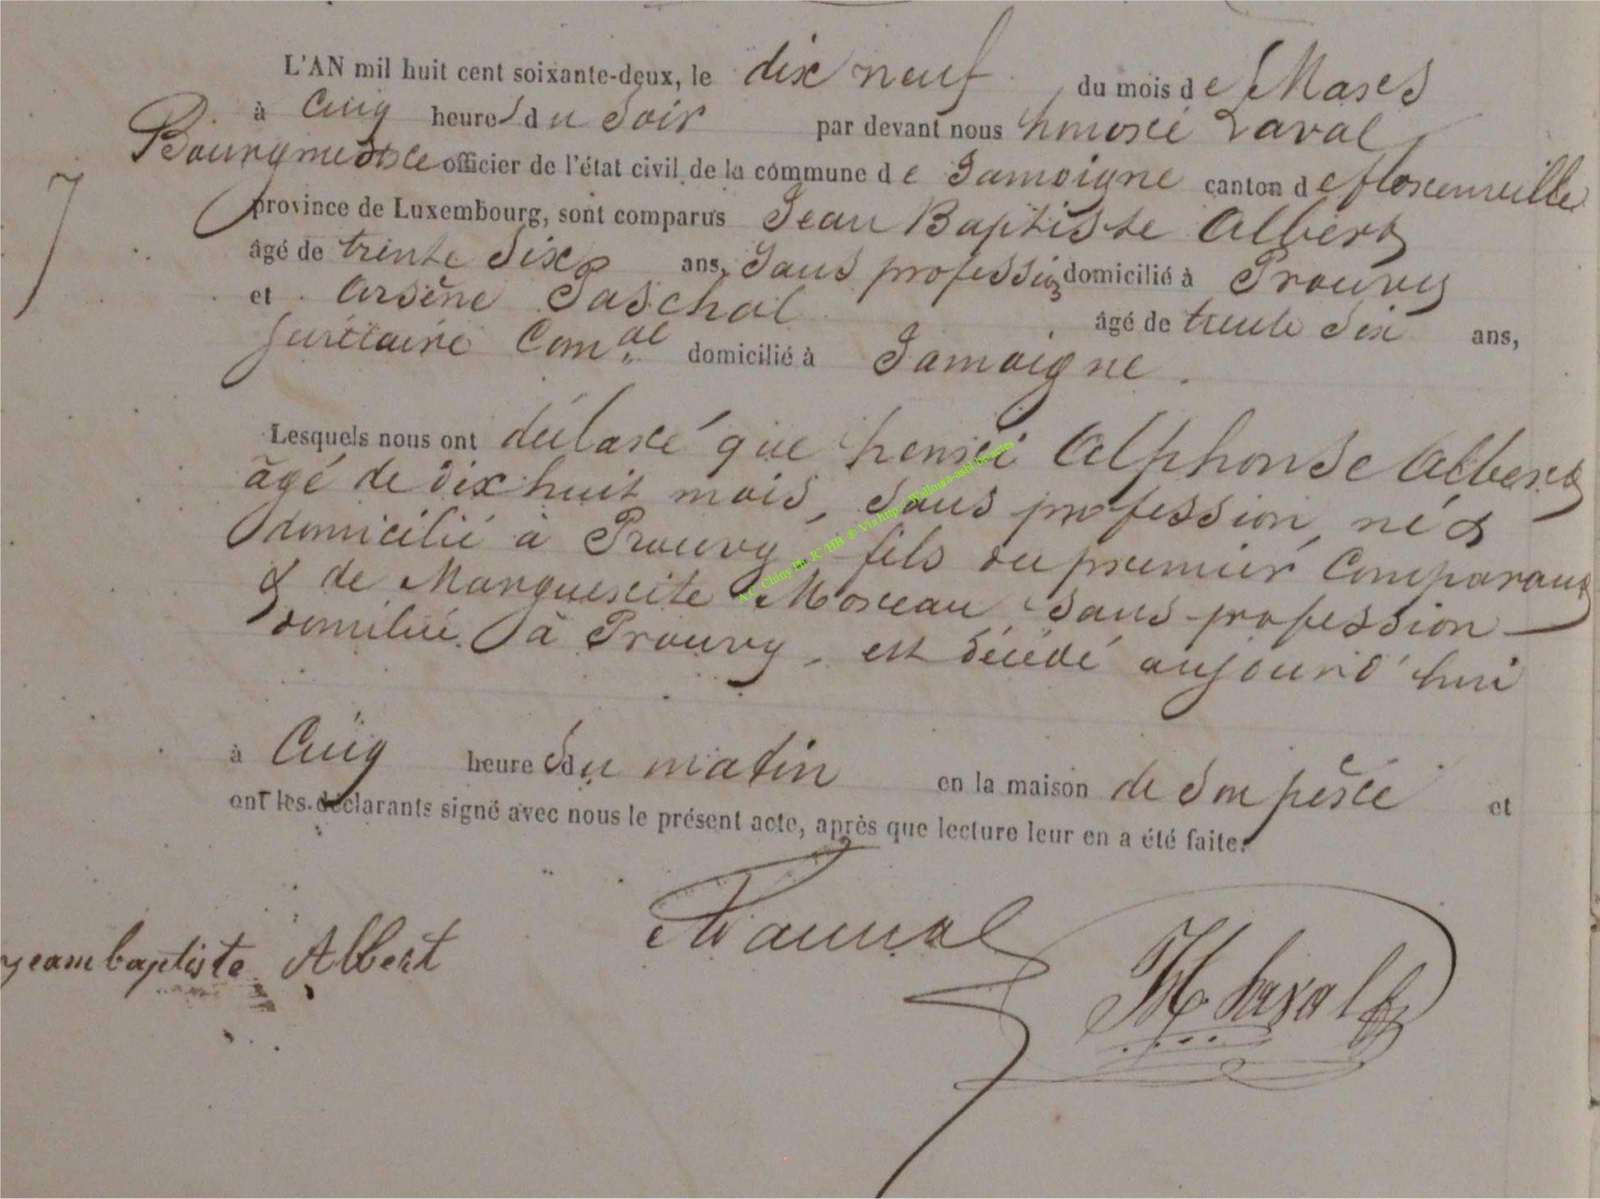 L'AN mil huit cent soixante-deux, le dix neuf du mois de Mars
à Cinq heures du Soir par devant nous honoré Laval
Bourgmestre officier de l'état civil de la commune de Jamoigne canton de florenville
7
province de Luxembourg, sont comparus Jean Baptiste Albert
âgé de trente Six ans, Sans profession domicilié à Prouvy
et Arsène Paschal âgé de trente Six ans,
Secrétaire Comal domicilié à Jamoigne.
Lesquels nous ont déclaré que henri Alphonse Albert
âgé de dix huit mois, Sans profession, né &
domicilié à Prouvy, fils du premier Comparant
& de Marguerite Moreau Sans profession
domiliée à Prouvy, est décédé aujourd'hui
à Cinq heures du matin en la maison de Son père et
ont les déclarants signé avec nous le présent acte, après que lecture leur en a été faite.
jeambaptiste Albert
H Laval